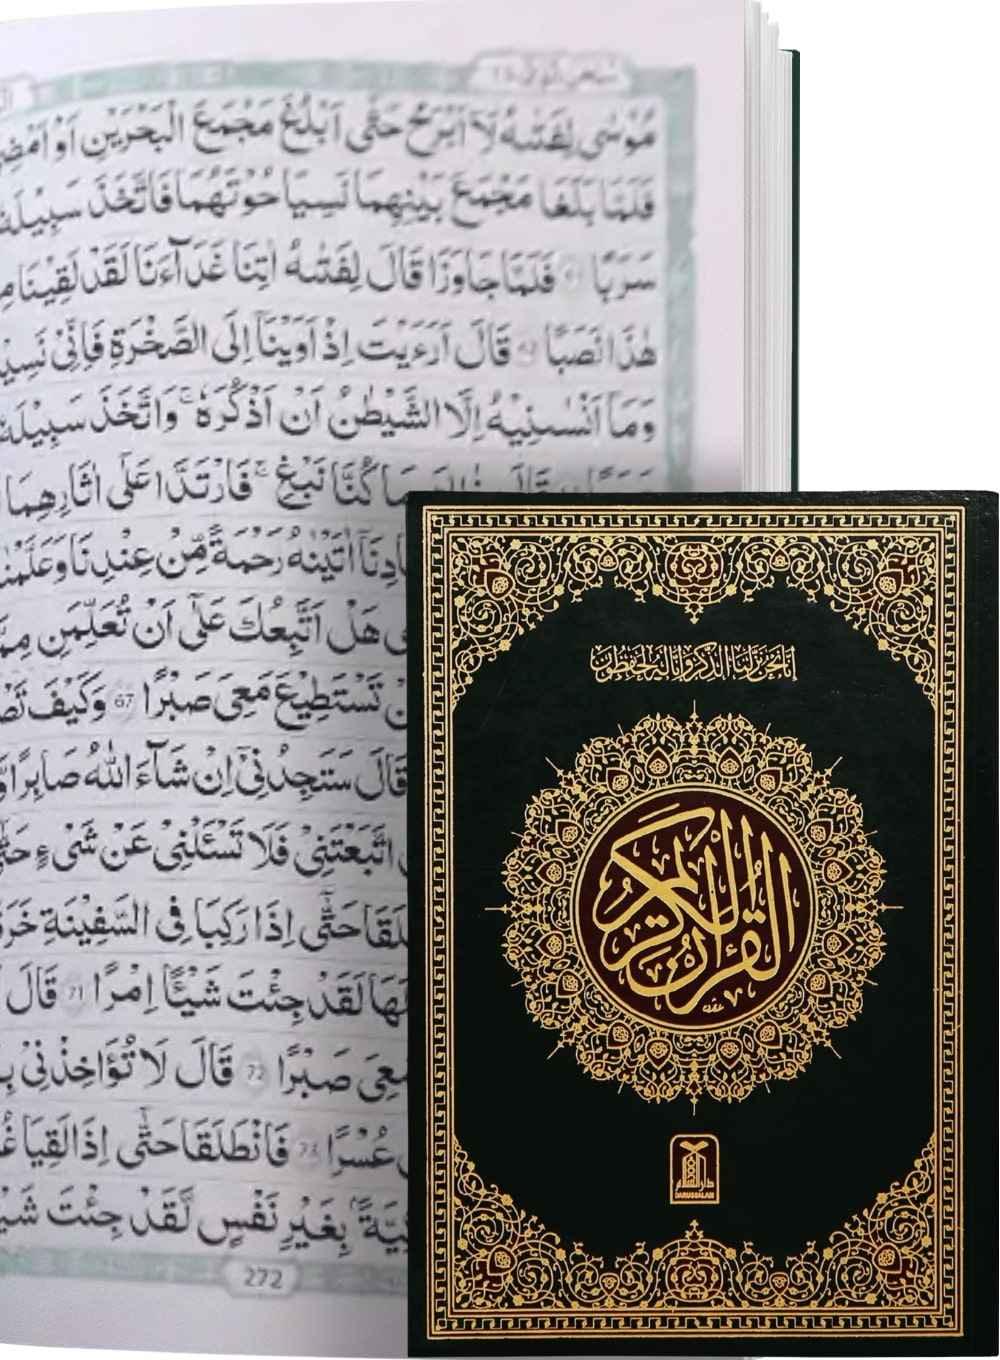 مُوْسٰى لِفَتٰىهُ لَاۤ اَبْرَحُ حَتّٰۤى اَبْلُغَ مَجْمَعَ الْبَحْرَيْنِ اَوْ اَمْضِيَ
فَلَمَّا بَلَغَا مَجْمَعَ بَيْنِهِمَا نَسِيَا حُوْتَهُمَا فَاتَّخَذَ سَبِيْلَهٗ
سَرَبًا فَلَمَّا جَاوَزَا قَالَ لِفَتٰىهُ اٰتِنَا غَدَآءَنَا لَقَدْ لَقِيْنَا مِنْ
هٰذَا نَصَبًا قَالَ اَرَءَيْتَ اِذْ اَوَيْنَاۤ اِلَى الصَّخْرَةِ فَاِنِّيْ
وَمَاۤ اَنْسٰىنِيْهُ اِلَّا الشَّيْطٰنُ اَنْ اَذْكُرَهٗ ۚ وَاتَّخَذَ سَبِيْلَهٗ
كُنَّا نَبْغِ ۖ فَارْتَدَّا عَلٰۤى اٰثَارِهِمَا
اٰتَيْنٰهُ رَحْمَةً مِّنْ عِنْدِنَا وَعَلَّمْنٰهُ
هَلْ اَتَّبِعُكَ عَلٰۤى اَنْ تُعَلِّمَنِ مِمَّا
تَسْتَطِيْعَ مَعِيَ صَبْرًا 67 وَكَيْفَ
قَالَ سَتَجِدُنِيْۤ اِنْ شَآءَ اللّٰهُ صَابِرًا
اتَّبَعْتَنِيْ فَلَا تَسْـَٔلْنِيْ عَنْ شَيْءٍ حَتّٰۤى
حَتّٰۤى اِذَا رَكِبَا فِى السَّفِيْنَةِ
لَقَدْ جِئْتَ شَيْـًٔا اِمْرًا 71 قَالَ
مَعِيَ صَبْرًا 72 قَالَ لَا تُؤَاخِذْنِيْ
عُسْرًا 73 فَانْطَلَقَا حَتّٰۤى اِذَا لَقِيَا
بِغَيْرِ نَفْسٍ لَقَدْ جِئْتَ
272
إنا نحن نزلنا الذكر وإنا له لحافظون
القرآن الكريم
دار السلام
DARUSSALAM